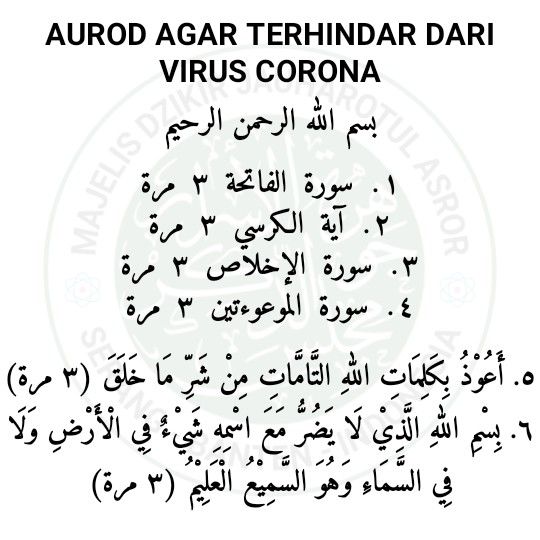 AUROD AGAR TERHINDAR DARI
VIRUS CORONA
بسم الله الرحمن الرحيم
١. سورة الفاتحة ٣ مرة
٢. آية الكرسي ٣ مرة
٣. سورة الإخلاص ٣ مرة
٤. سورة الموعوءتين ٣ مرة
٥. أَعُوْذُ بِكَلِمَاتِ اللهِ التَّامَّاتِ مِنْ شَرِّ مَا خَلَقَ (٣ مرة)
٦. بِسْمِ اللهِ الَّذِيْ لَا يَضُرُّ مَعَ اسْمِهِ شَيْءٌ فِي الْأَرْضِ وَلَا
فِي السَّمَاءِ وَهُوَ السَّمِيْعُ الْعَلِيْمُ (٣ مرة)
MAJELIS DZIKIR JAUHAROTUL ASROR